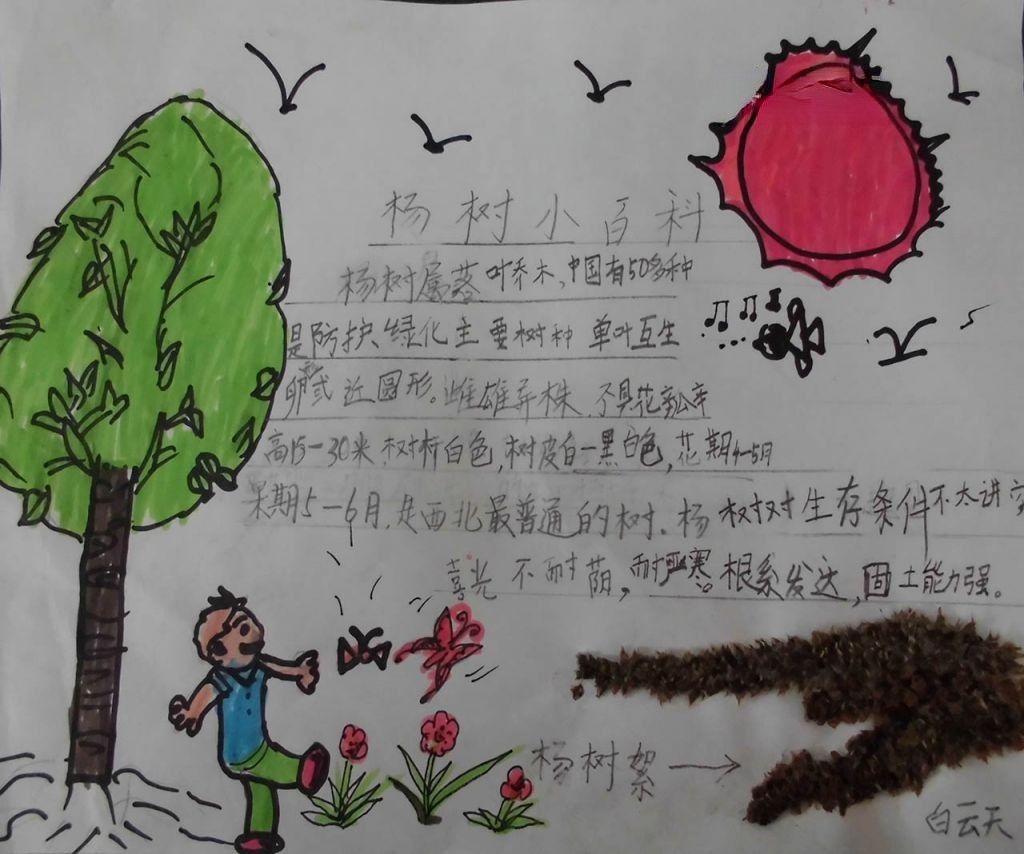 杨树小百科
杨树属落叶乔木,中国有50多种
是防护绿化主要树种 单叶互生
卵或近圆形。雌雄异株 不具花
高15-30米,树杆白色,树皮白-黑白色,花期4-5月
果期5-6月,是西北最普通的树.杨树树生存条件不太讲究
喜光 不耐荫,耐严寒。根系发达,固土能力强。
杨树絮
白云天